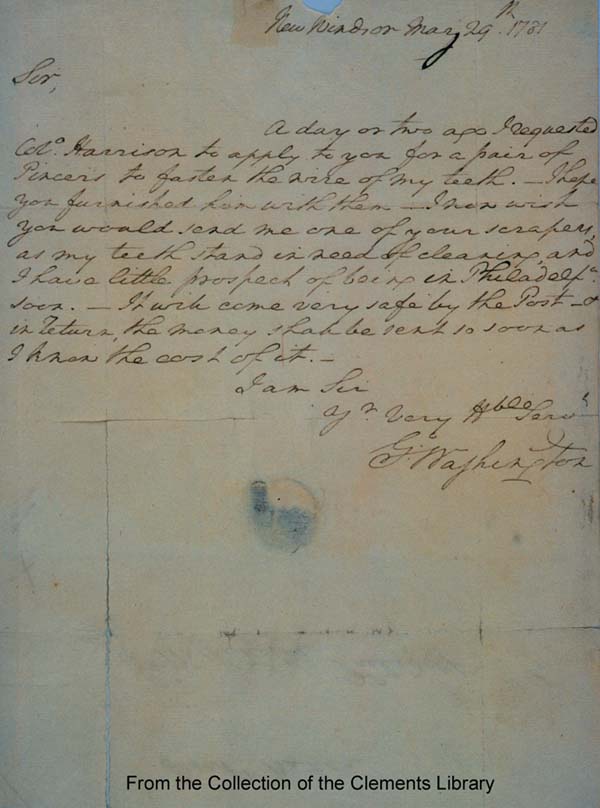 New Windsor May 29th. 1781
Sir,
A day or two ago I requested
Colo. Harrison to apply to you for a pair of
Pincers to fasten the wire of my teeth. — I hope
you furnished him with them — I now wish
you would send me one of your scrapers,
as my teeth stand in need of cleaning, and
I have little prospect of being in Philadelpa.
soon. — It will come very safe by the Post — &
in return, the money shall be sent so soon as
I know the cost of it. —
I am Sir
Yr. Very Hble Servt
Go. Washington
From the Collection of the Clements Library